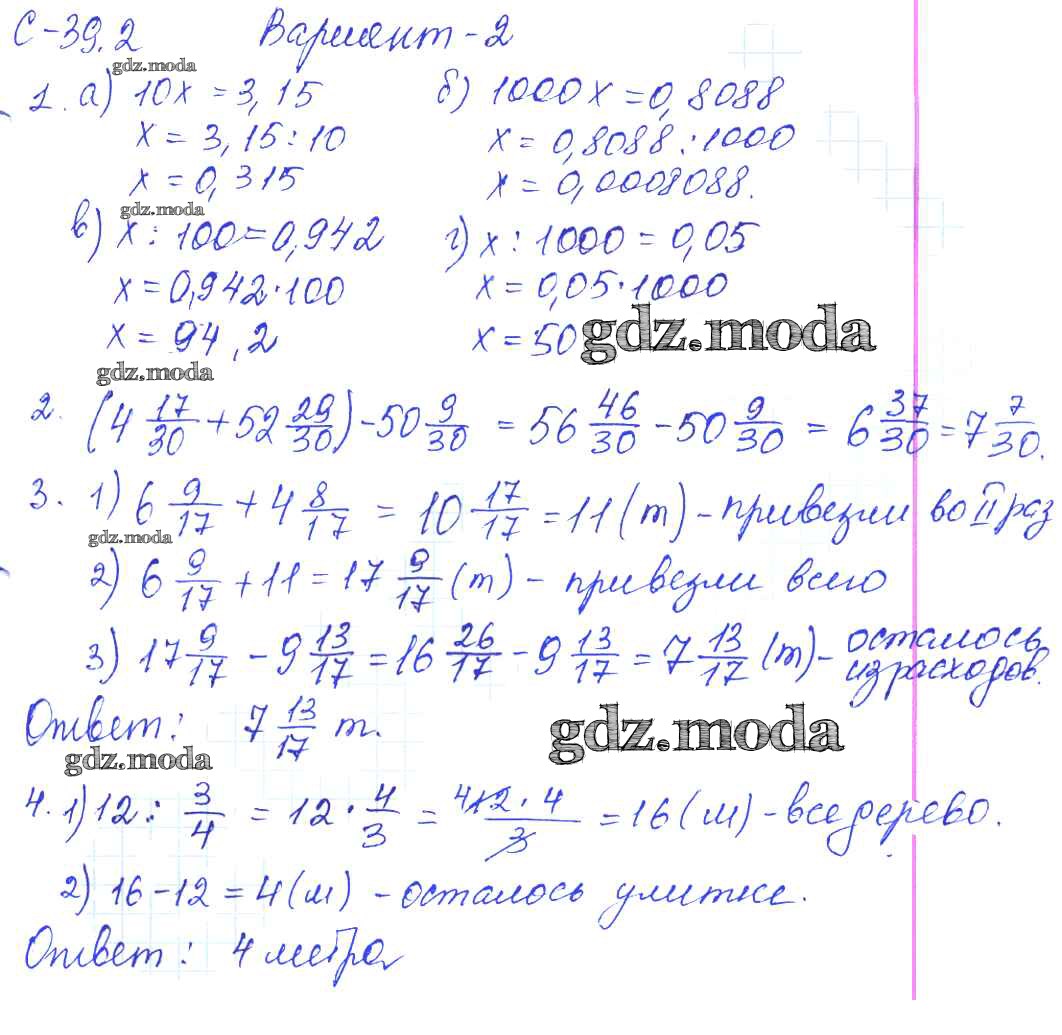 С-39.2 Вариант-2
gdz.moda
1. а) 10x = 3,15 б) 1000x = 0,8088
x = 3,15 : 10 x = 0,8088 : 1000
x = 0,315 x = 0,0008088.
gdz.moda
в) x : 100 = 0,942 г) x : 1000 = 0,05
x = 0,942 · 100 x = 0,05 · 1000
x = 94,2 x = 50 gdz.moda
gdz.moda
2. (4 17/30 + 52 29/30) - 50 9/30 = 56 46/30 - 50 9/30 = 6 37/30 = 7 7/30.
3. 1) 6 9/17 + 4 8/17 = 10 17/17 = 11 (т) - привезли во II раз
gdz.moda
2) 6 9/17 + 11 = 17 9/17 (т) - привезли всего
3) 17 9/17 - 9 13/17 = 16 26/17 - 9 13/17 = 7 13/17 (т) - осталось
израсходов.
Ответ: 7 13/17 т. gdz.moda
gdz.moda
4. 1) 12 : 3/4 = 12 · 4/3 = 4 12 · 4/3 = 16 (м) - все дерево.
2) 16 - 12 = 4 (м) - осталось улитке.
Ответ: 4 метра